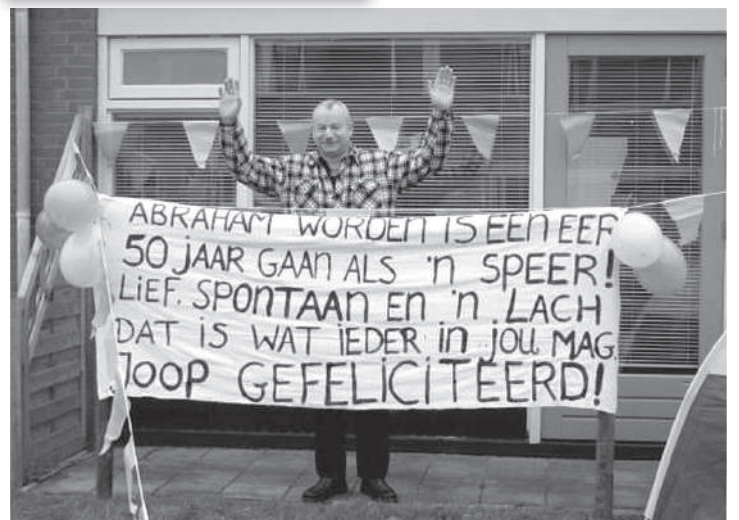 ABRAHAM WORDEN IS EEN EER
50 JAAR GAAN ALS 'N SPEER!
LIEF. SPONTAAN EN 'N LACH
DAT IS WAT IEDER IN JOU MAG.
JOOP GEFELICITEERD!